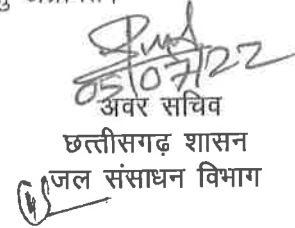 05/07/22
अवर सचिव
छत्तीसगढ़ शासन
जल संसाधन विभाग